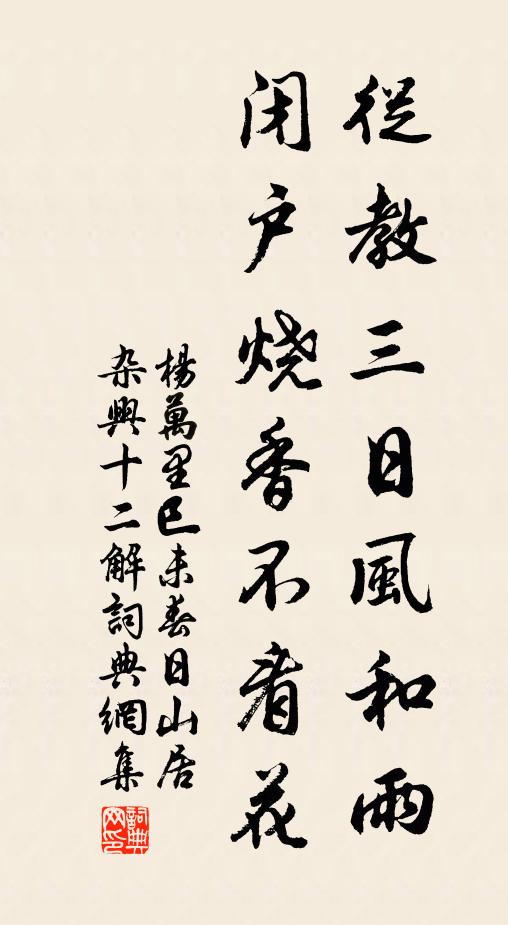 從教三日風和雨
闭户燒香不看花
楊萬里已未春日山居
杂興十二解詞典網集
詞典
网印